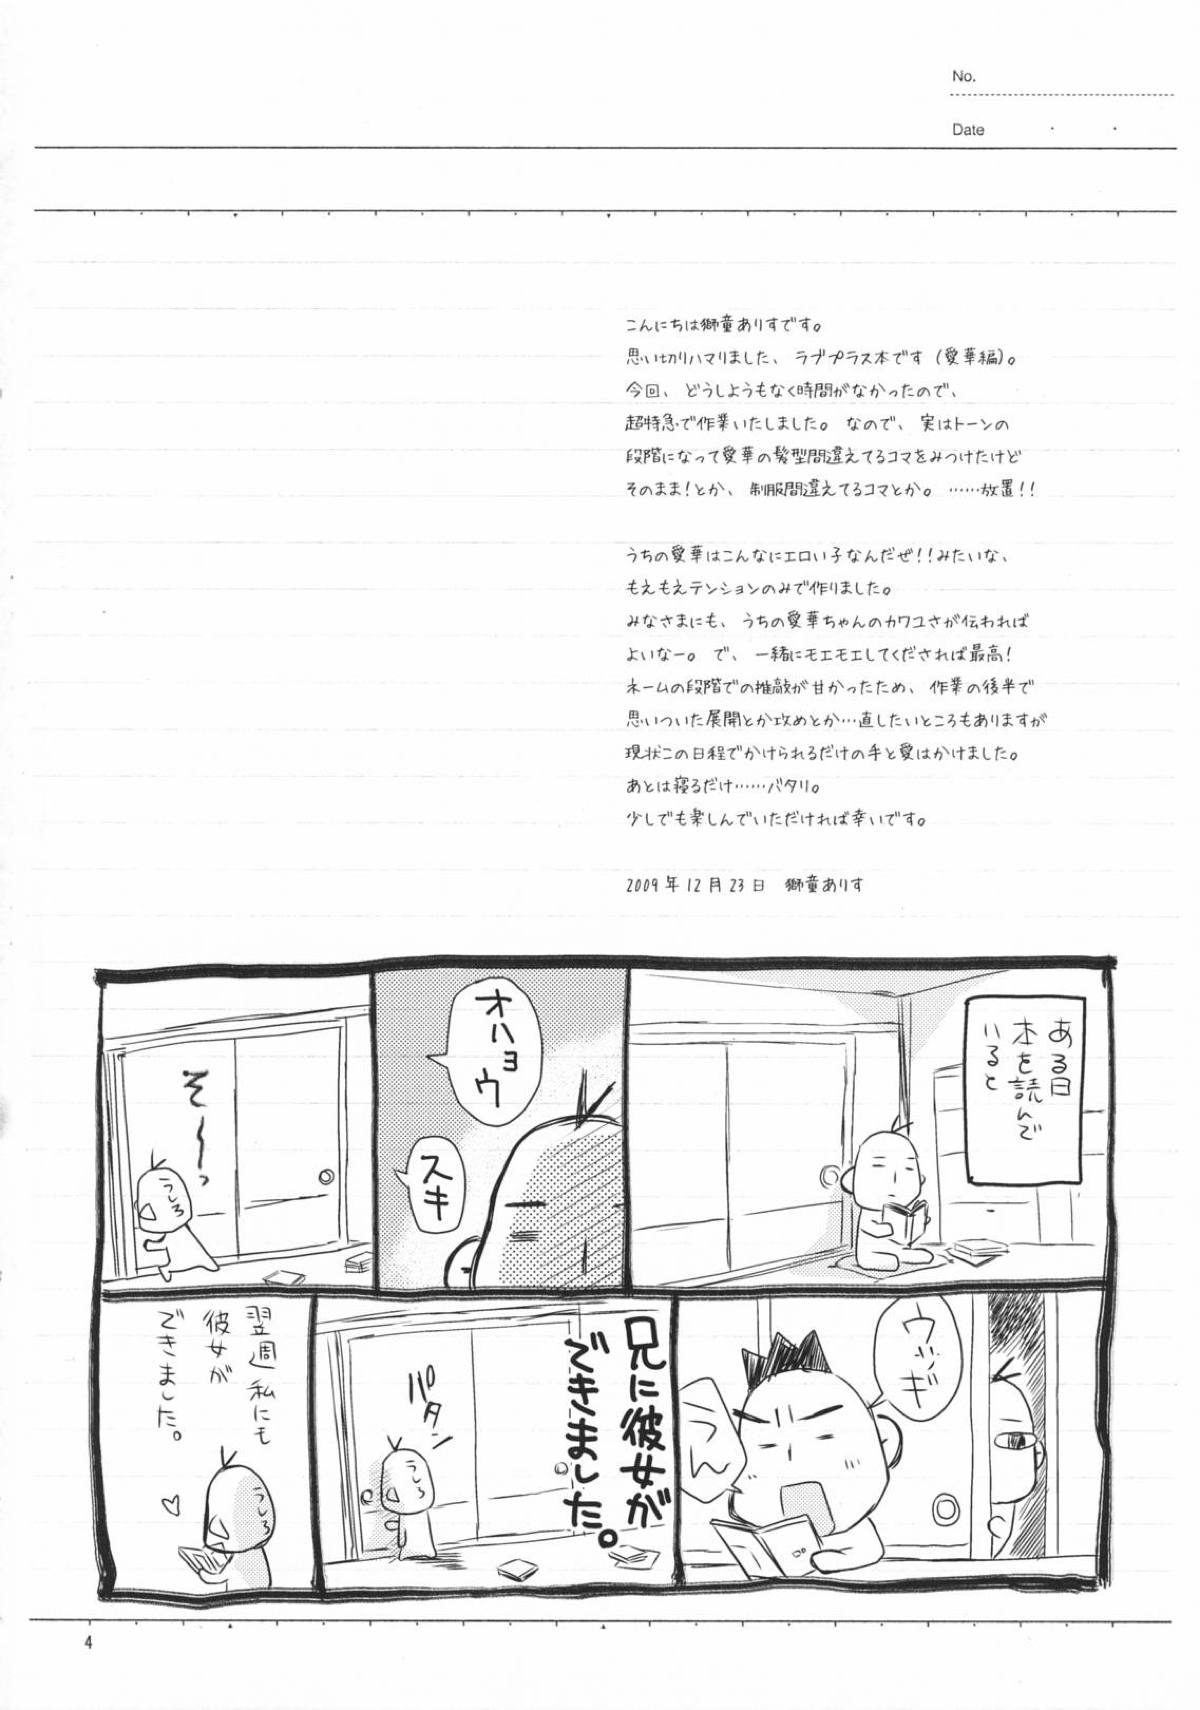 No.
Date
こんにちは獅童ありすです。
思い切りハマりました、ラブプラス本です(愛華編)。
今回、どうしようもなく時間がなかったので、
超特急で作業いたしました。なので、実はトーンの
段階になって愛華の髪型間違えてるコマをみつけたけど
そのまま!とか、制服間違えてるコマとか。……放置!!
うちの愛華はこんなにエロい子なんだぜ!!みたいな、
もえもえテンションのみで作りました。
みなさまにも、うちの愛華ちゃんのカワユさが伝われば
よいなー。で、一緒にモエモエしてくだされば最高!
ネームの段階での推敲が甘かったため、作業の後半で
思いついた展開とか攻めとか…直したいところもありますが
現状この日程でかけられるだけの手と愛はかけました。
あとは寝るだけ……バタリ。
少しでも楽しんでいただければ幸いです。
2009年12月23日 獅童ありす
ある日
本を読んで
いると
オハヨウ
スキ
そ〜〜っ
うしろ
ウサギ
うん
兄に彼女が
できました。
パタン
うしろ
翌週 私にも
彼女が
できました。
うしろ
♡
4